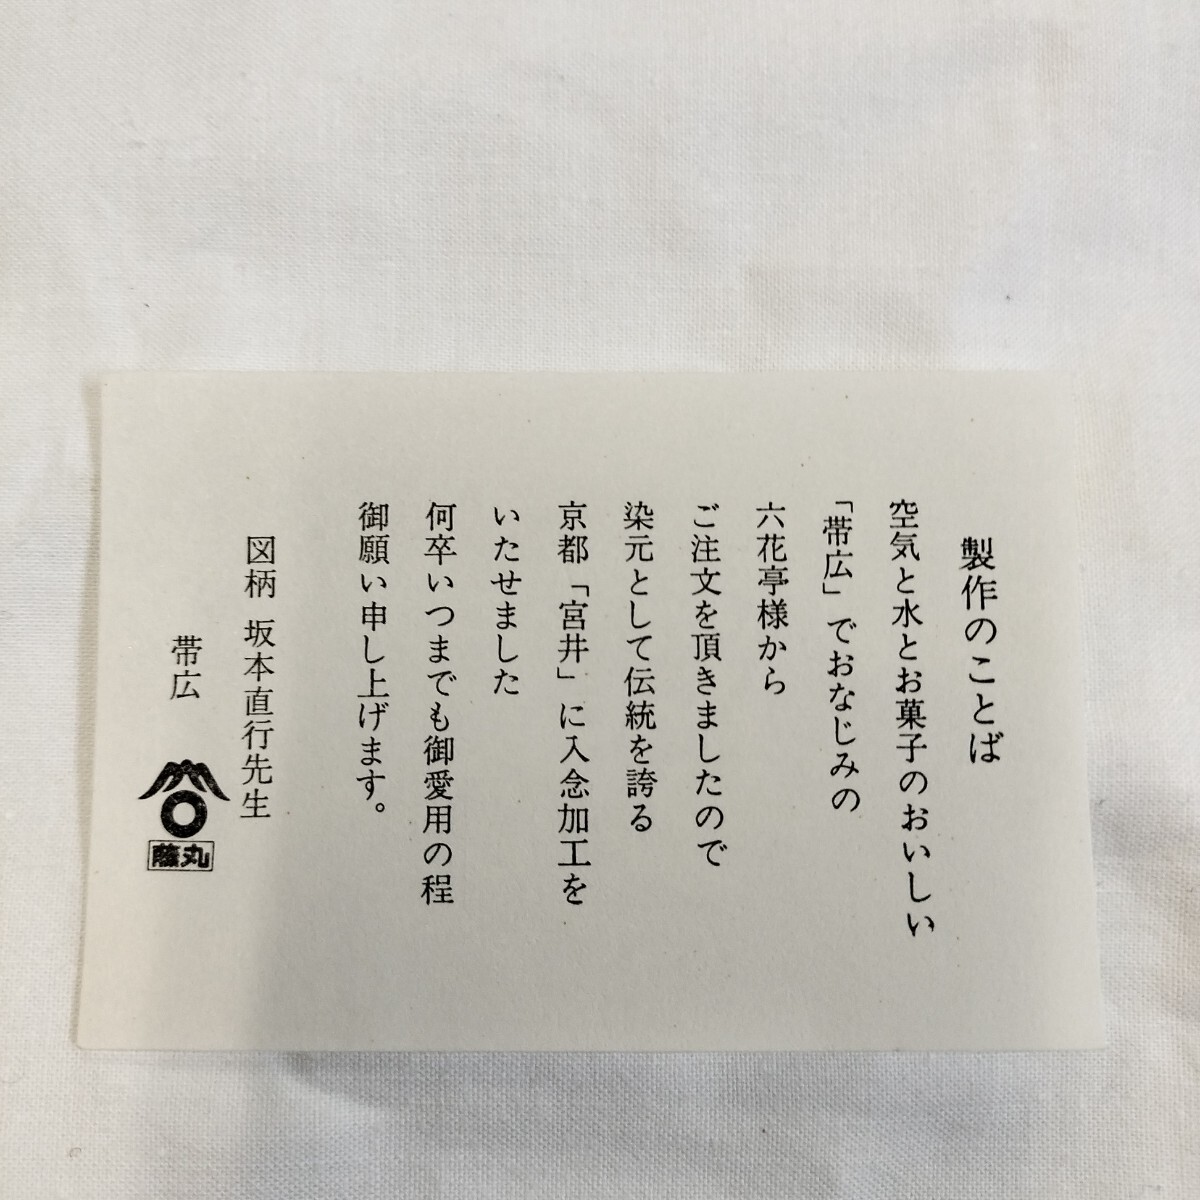 製作のことば
空気と水とお菓子のおいしい
「帯広」でおなじみの
六花亭様から
ご注文を頂きましたので
染元として伝統を誇る
京都「宮井」に入念加工を
いたせました
何卒いつまでも御愛用の程
御願い申し上げます。
図柄 坂本直行先生
帯広
藤丸